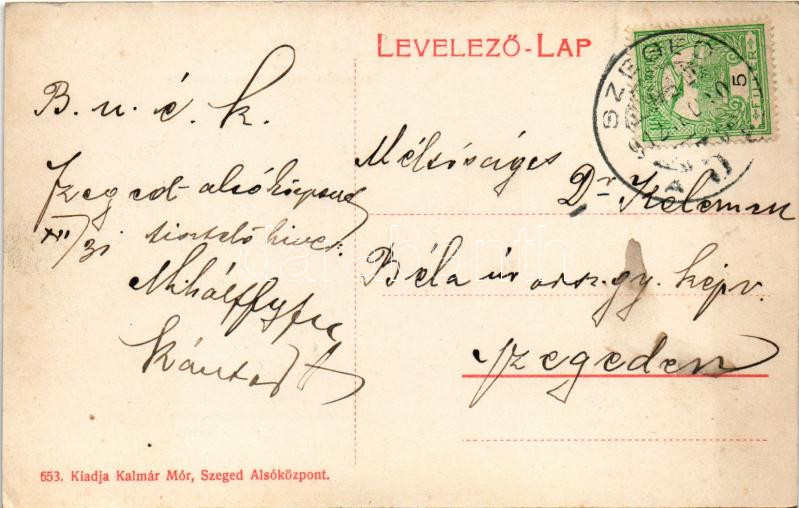 LEVELEZŐ-LAP
SZEGED
5
B. u. é. k.
Szeged-alsóközpont
XII/31 tisztelő hive:
Kántor
Méltóságos
Dr Kelemen
Béla úr orsz. gy. képv.
Szegeden
653. Kiadja Kalmár Mór, Szeged Alsóközpont.